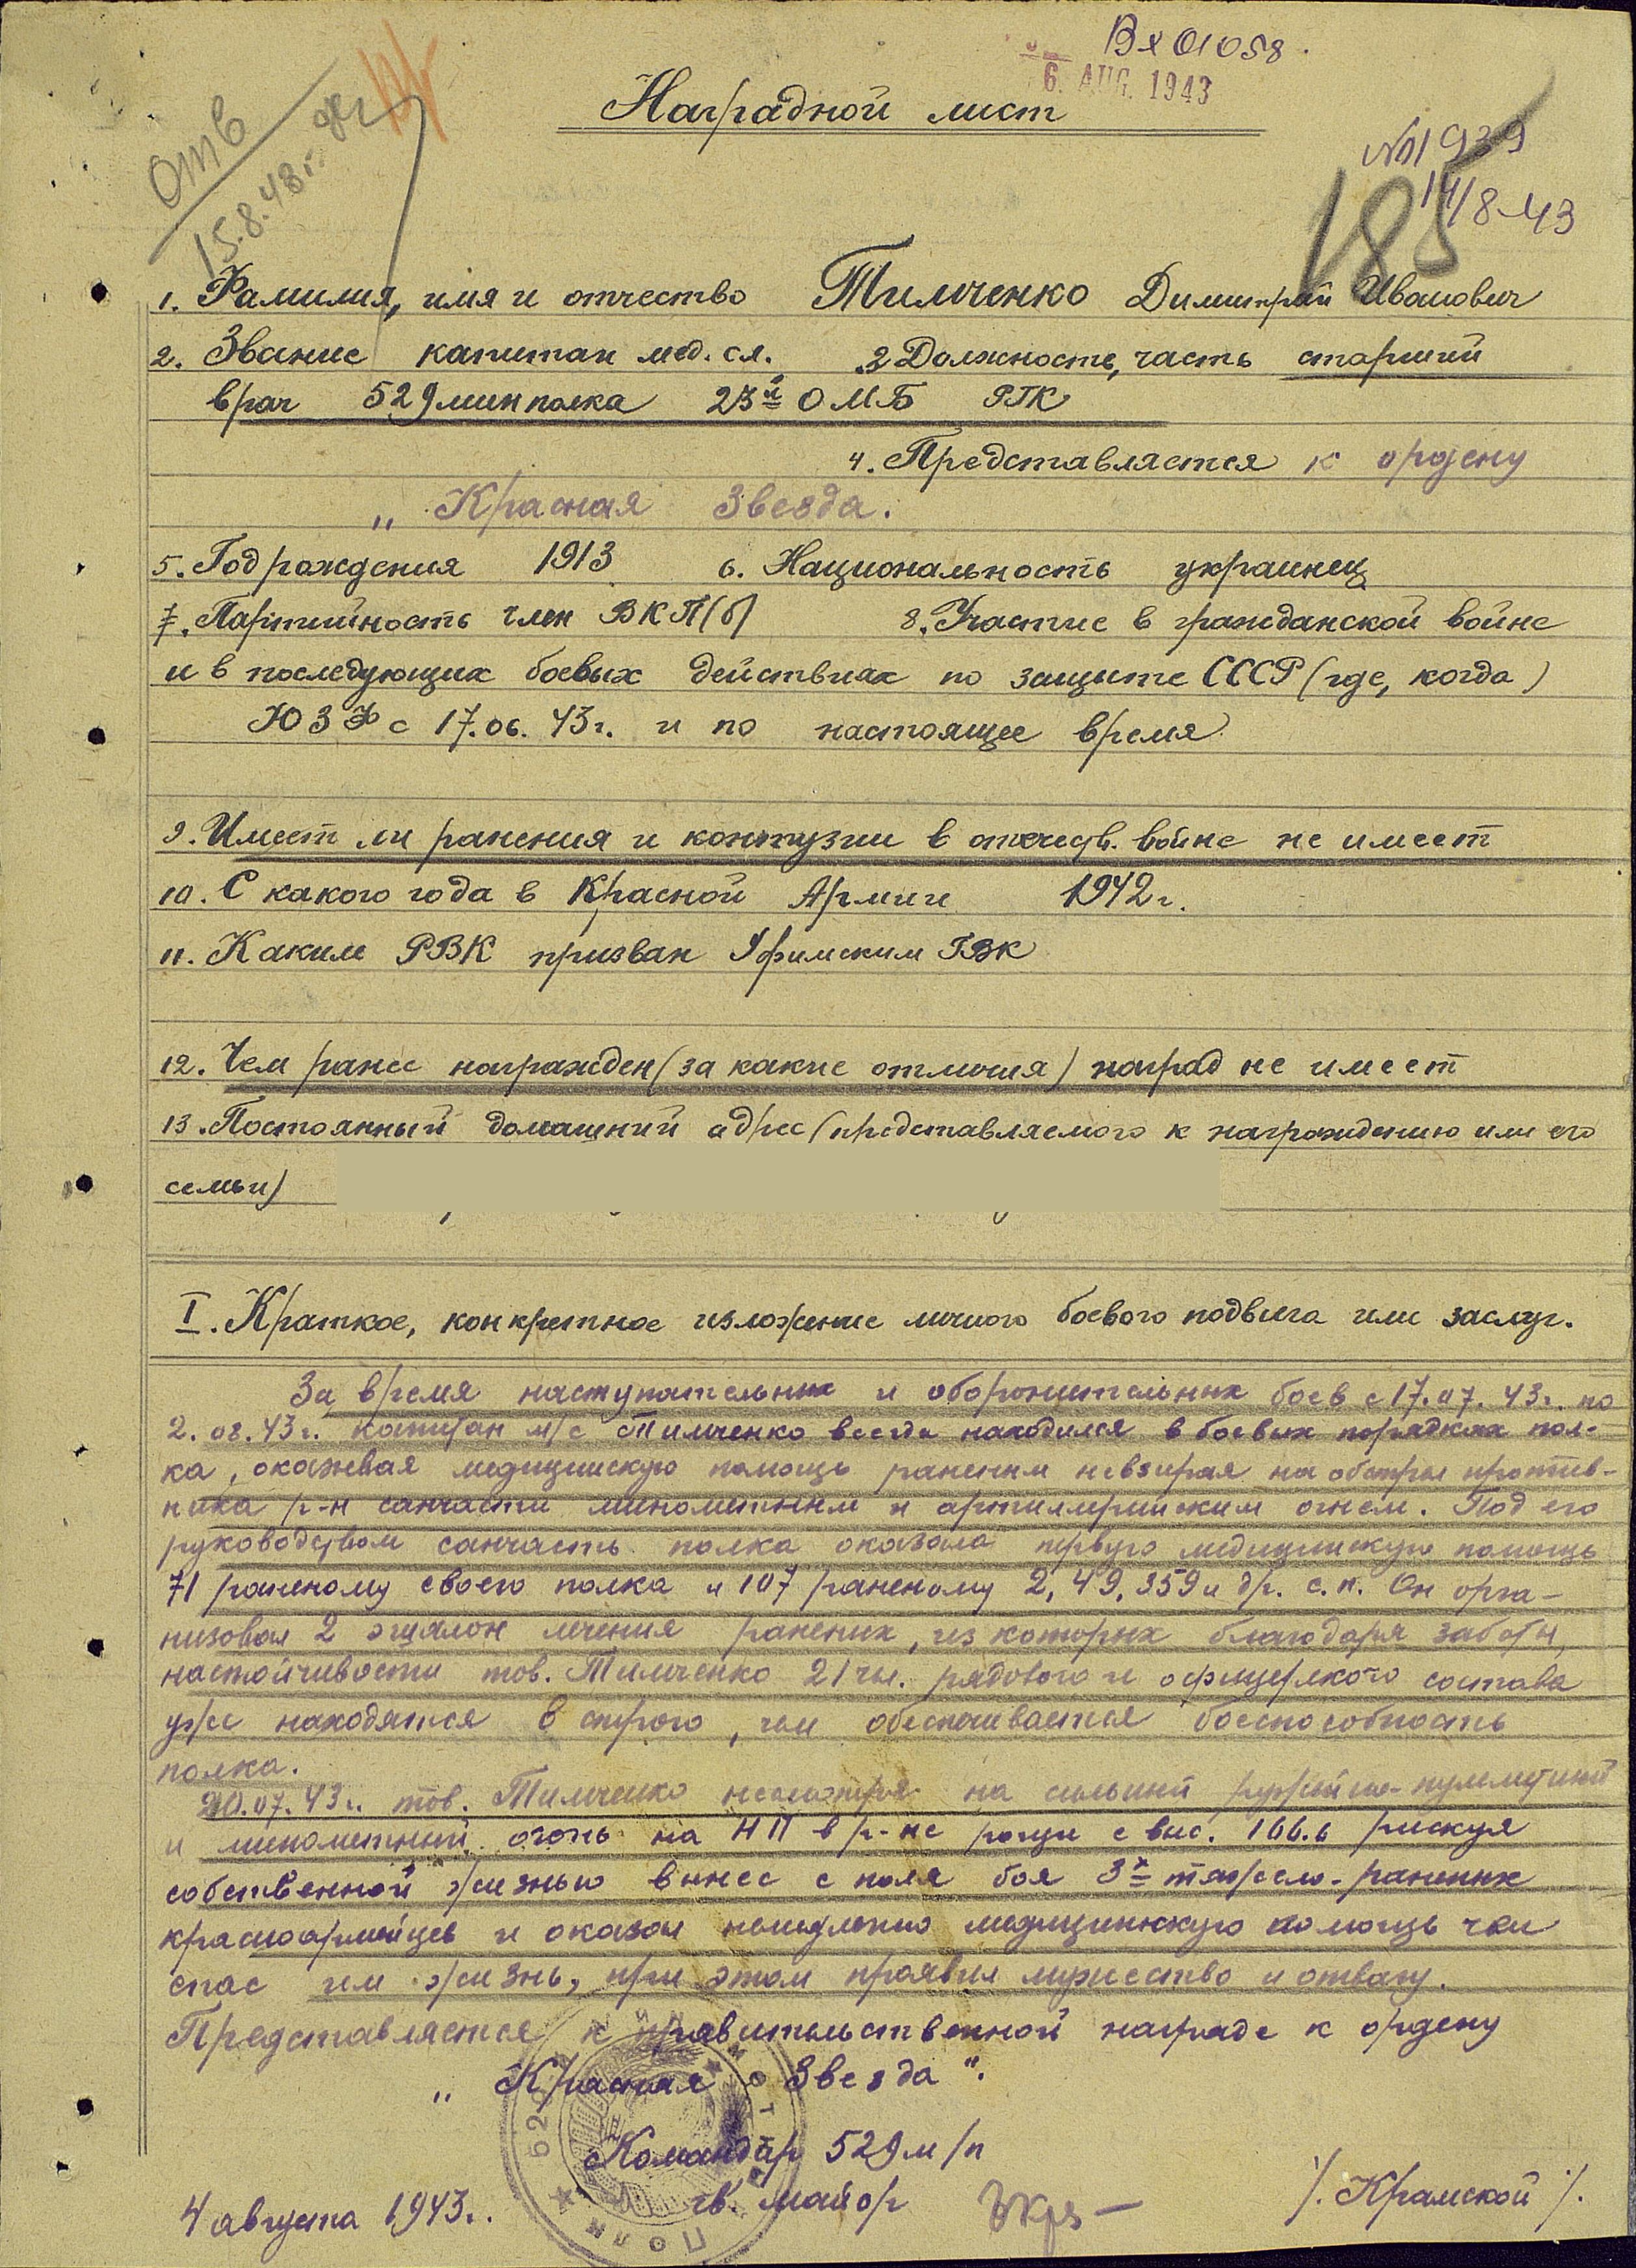 Вх 01058.
6. AUG. 1943
Наградной лист
отв
15.8.43г.
№1939
14/8-43
185
1. Фамилия, имя и отчество Тимченко Димитрий Иванович
2. Звание капитан мед. сл. 3 Должность, часть старший
врач 529 минполка 23й ОМБ РГК
4. Представляется к ордену
„ Красная Звезда.
5. Год рождения 1913 6. Национальность украинец
7. Партийность член ВКП(б) 8. Участие в гражданской войне
и в последующих боевых действиях по защите СССР (где, когда)
ЮЗФ с 17.06.43г. и по настоящее время
9. Имеет ли ранения и контузии в отечеств. войне не имеет
10. С какого года в Красной Армии 1942г.
11. Каким РВК призван Уфимским ГВК
12. Чем ранее награжден (за какие отличия) наград не имеет
13. Постоянный домашний адрес (представляемого к награждению или его
семьи)
I. Краткое, конкретное изложение личного боевого подвига или заслуг.
За время наступательных и оборонительных боев с 17.07.43г. по
2.08.43г. капитан м/с Тимченко всегда находился в боевых порядках пол-
ка, оказывая медицинскую помощь раненым невзирая на обстрел против-
ника р-н санчасти минометным и артиллерийским огнем. Под его
руководством санчасть полка оказала первую медицинскую помощь
71 раненому своего полка и 107 раненому 2, 49, 359 и др. с.п. Он орга-
низовал 2 эшалон лечения раненых, из которых благодаря заботы,
настойчивости тов. Тимченко 21 чел. рядового и офицерского состава
уже находятся в строю, чем обеспечивается боеспособность
полка.
20.07.43г. тов. Тимченко несмотря на сильный ружейно-пулеметный
и минометный огонь на НП в р-не рощи с выс. 166.6 рискуя
собственной жизнью вынес с поля боя 3х тяжело-раненых
красноармейцев и оказал немедленно медицинскую помощь чем
спас им жизнь, при этом проявил мужество и отвагу.
Представляется к правительственной награде к ордену
„ Красная Звезда".
Командир 529 м/п
гв. майор /. Крамской /.
4 августа 1943г.